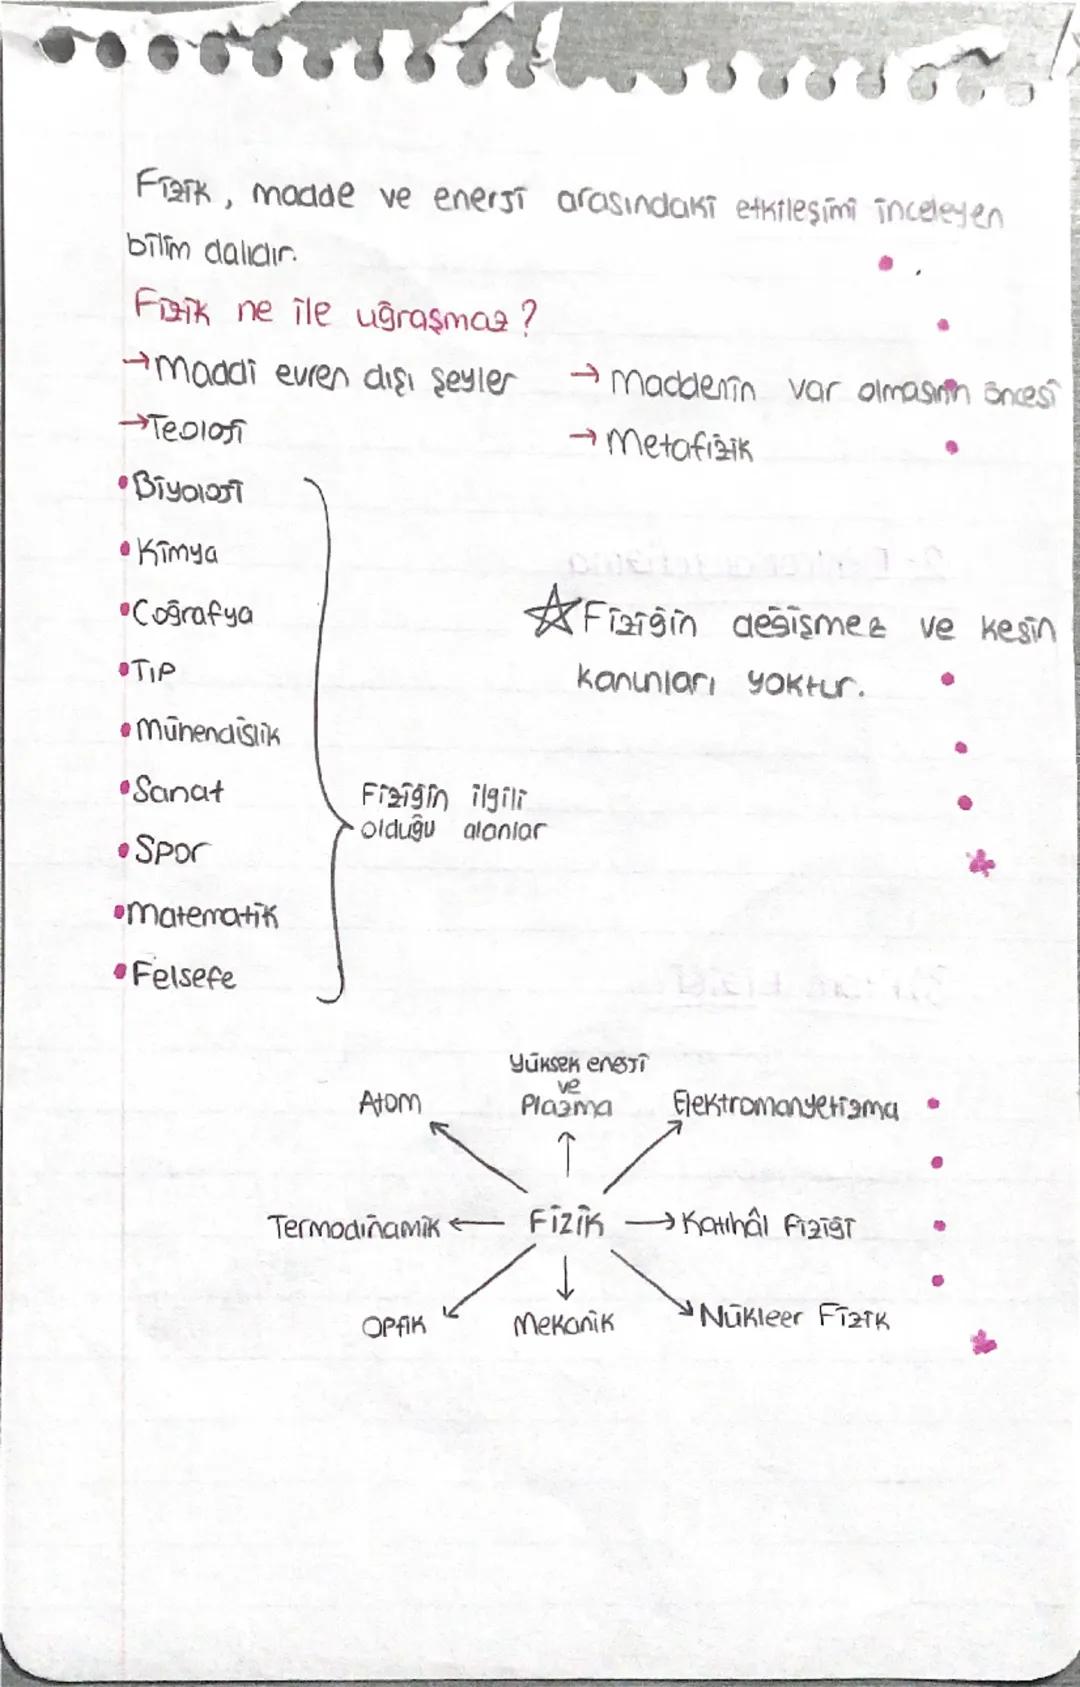 Fizik, madde ve enerji arasındaki etkileşimi inceleyen
bilim dalıdır.
Fizik ne ile uğraşmaz?
→Maddi evren dışı şeyler
→ Maddenin var olmasının öncesi
→Teoloji
→ Metafizik
•Biyoloji
•Kimya
•Coğrafya
•Tıp
•Mühendislik
•Sanat
•Spor
•Matematik
•Felsefe
Fiziğin ilgili
olduğu alanlar
☆Fiziğin değişmez ve kesin
kanunları yoktur.
Yüksek enerji
ve
Plazma
Atom
Elektromanyetizma
Termodinamik ← Fizik → Katıhâl Fiziği
Optik
Mekanik
Nükleer Fizik